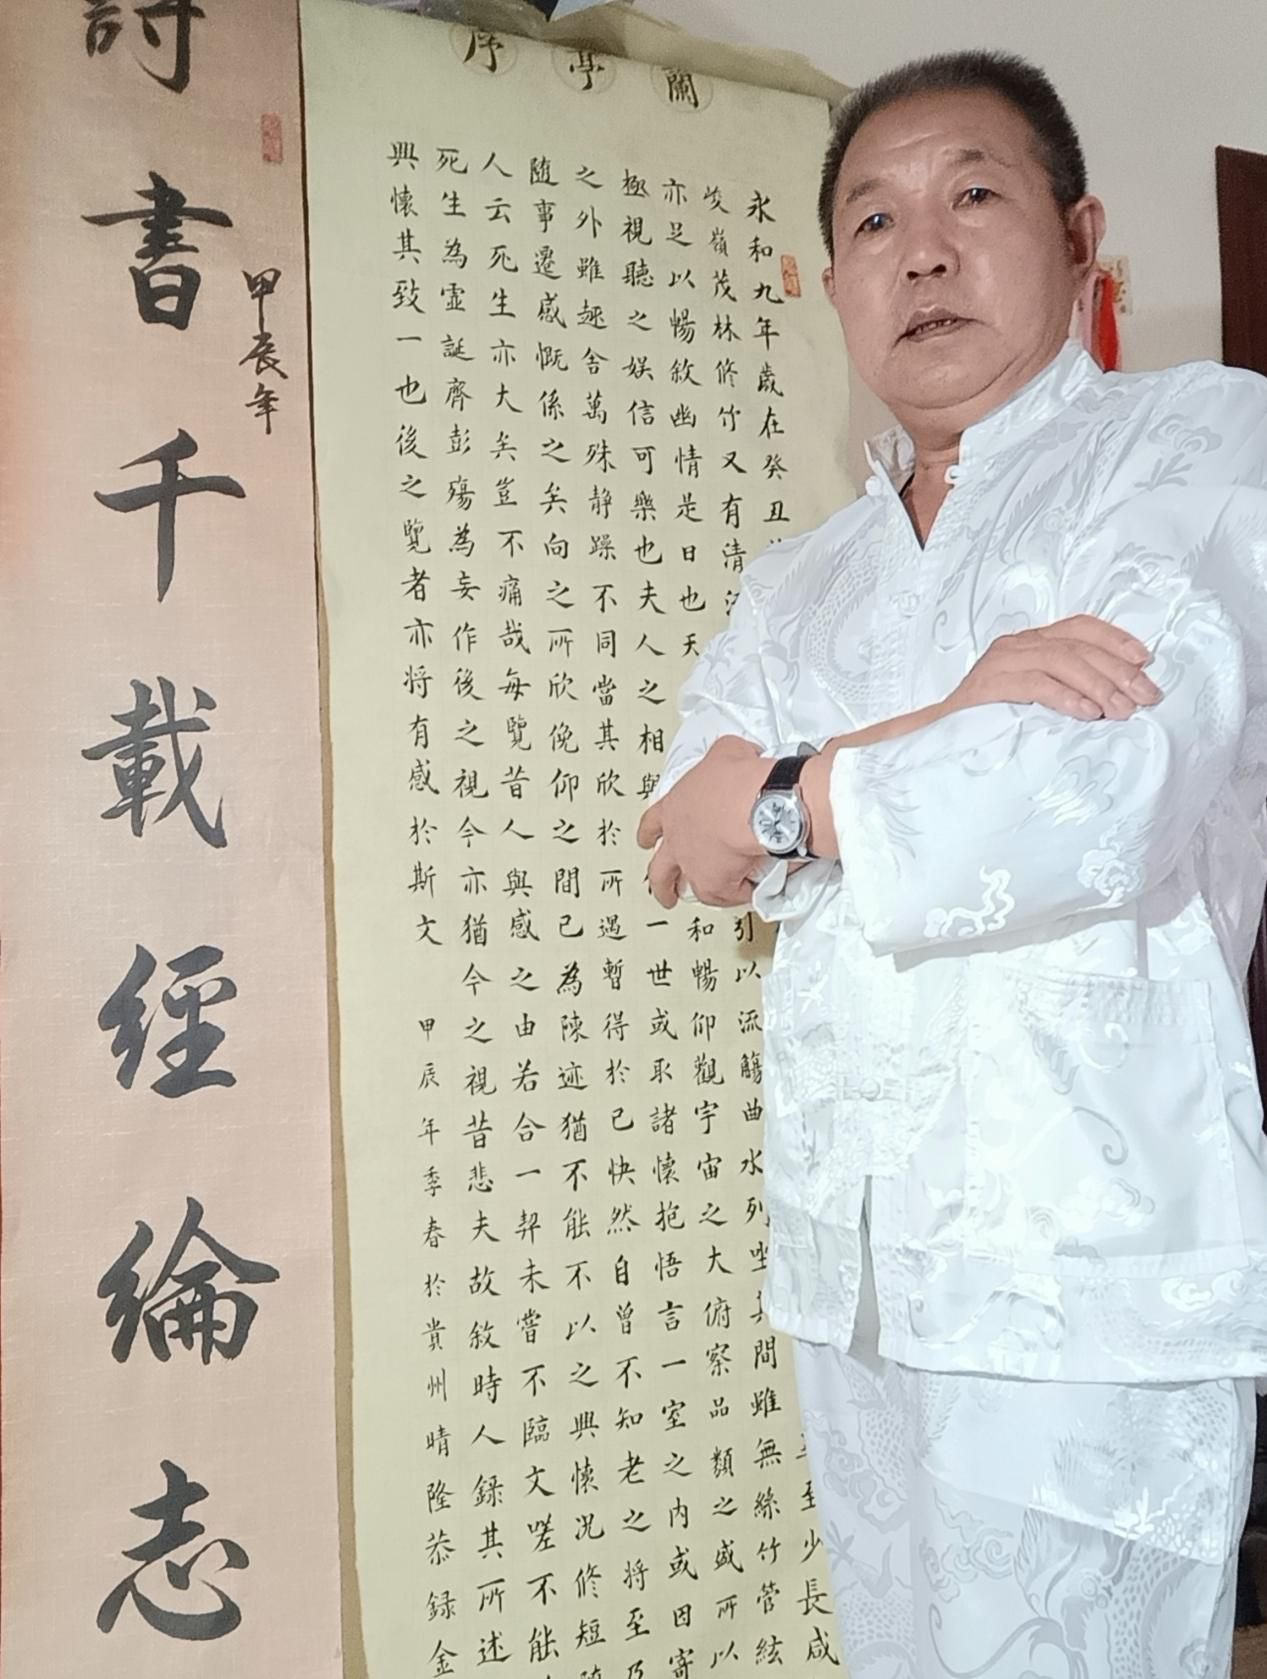 蘭亭序
永和九年歲在癸丑 至少長咸
峻嶺茂林修竹又有清 引以流觴曲水列坐其間雖無絲竹管絃
亦足以暢敘幽情是日也天 和暢仰觀宇宙之大俯察品類之盛所以
極視聽之娛信可樂也夫人之相與 一世或取諸懷抱悟言一室之內或因寄
之外雖趣舍萬殊静躁不同當其欣於所遇暫得於己快然自曾不知老之將至乃
隨事遷感慨係之矣向之所欣俛仰之間已為陳迹猶不能不以之興懷況修短隨
人云死生亦大矣豈不痛哉每覽昔人與感之由若合一契未嘗不臨文嗟不能
死生為虛誕齊彭殤為妄作後之視今亦猶今之視昔悲夫故敘時人錄其所述
興懷其致一也後之覽者亦將有感於斯文 甲辰年季春於貴州晴隆恭錄金
甲辰年
詩書千載經綸志